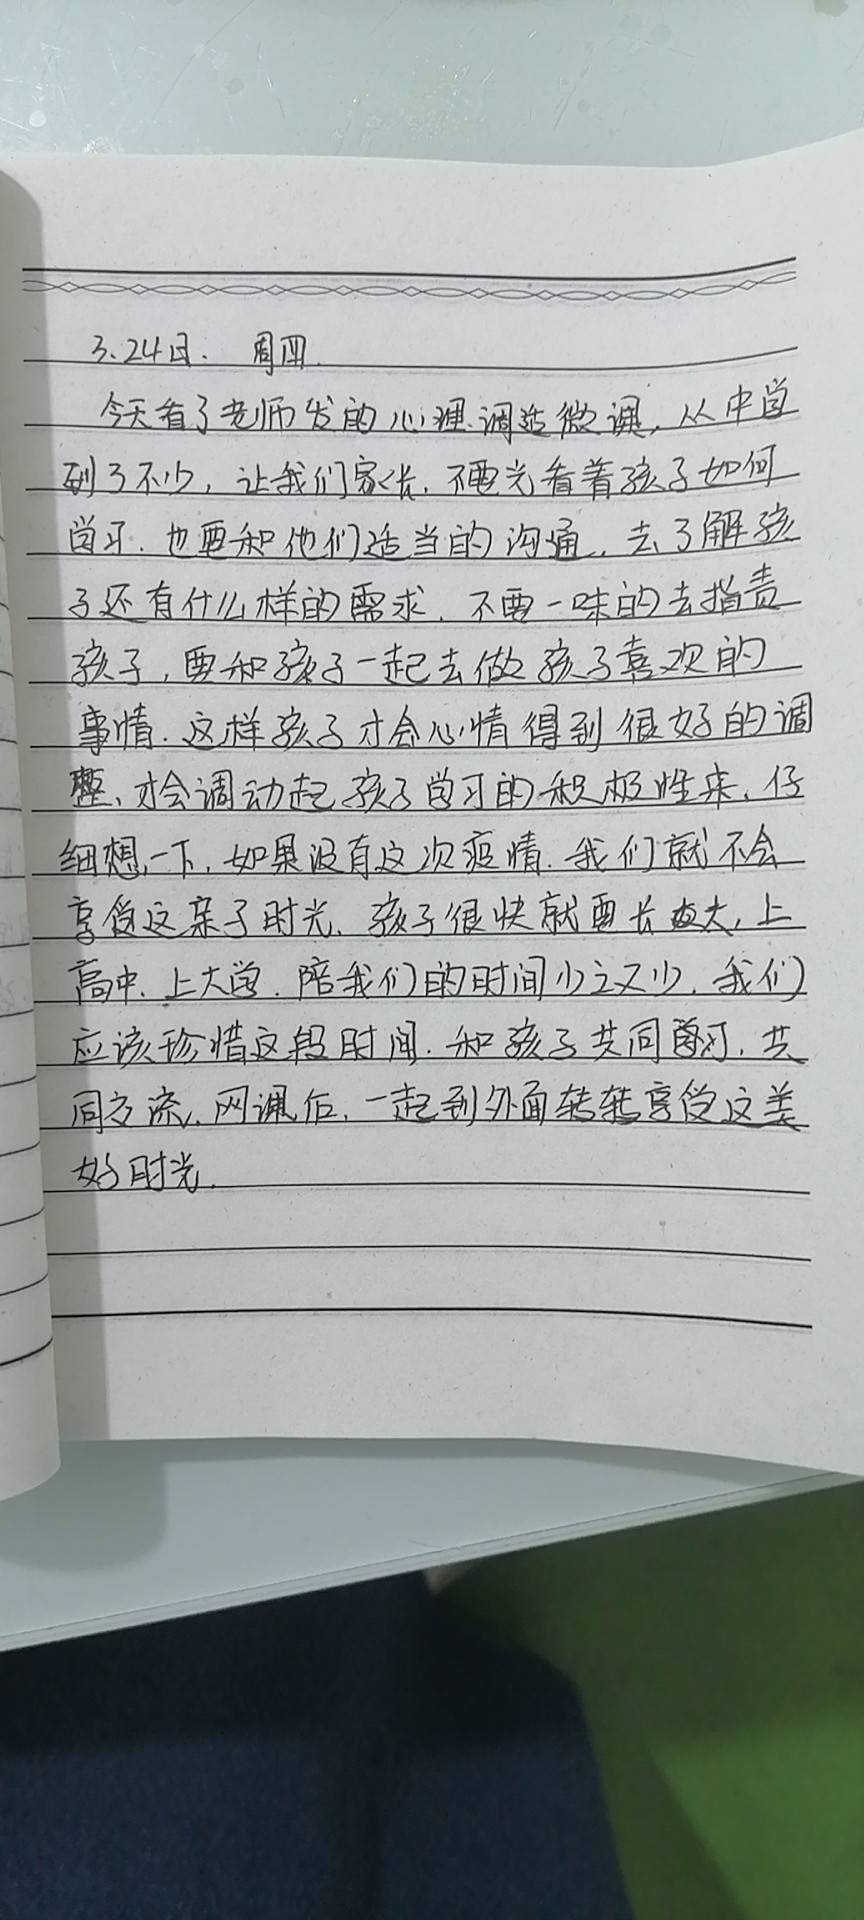 3.24日. 周四.
今天看了老师发的心理调适微课，从中学
到了不少，让我们家长，不要光看着孩子如何
学习，也要和他们适当的沟通，去了解孩
子还有什么样的需求，不要一味的去指责
孩子，要和孩子一起去做孩子喜欢的
事情.这样孩子才会心情得到很好的调
整、才会调动起孩子学习的积极性来、仔
细想一下，如果没有这次疫情.我们就不会
享受这亲子时光，孩子很快就要长大，上
高中、上大学.陪我们的时间少之又少，我们
应该珍惜这段时间.和孩子共同学习，共
同交流，网课后，一起到外面转转享受这美
好时光.